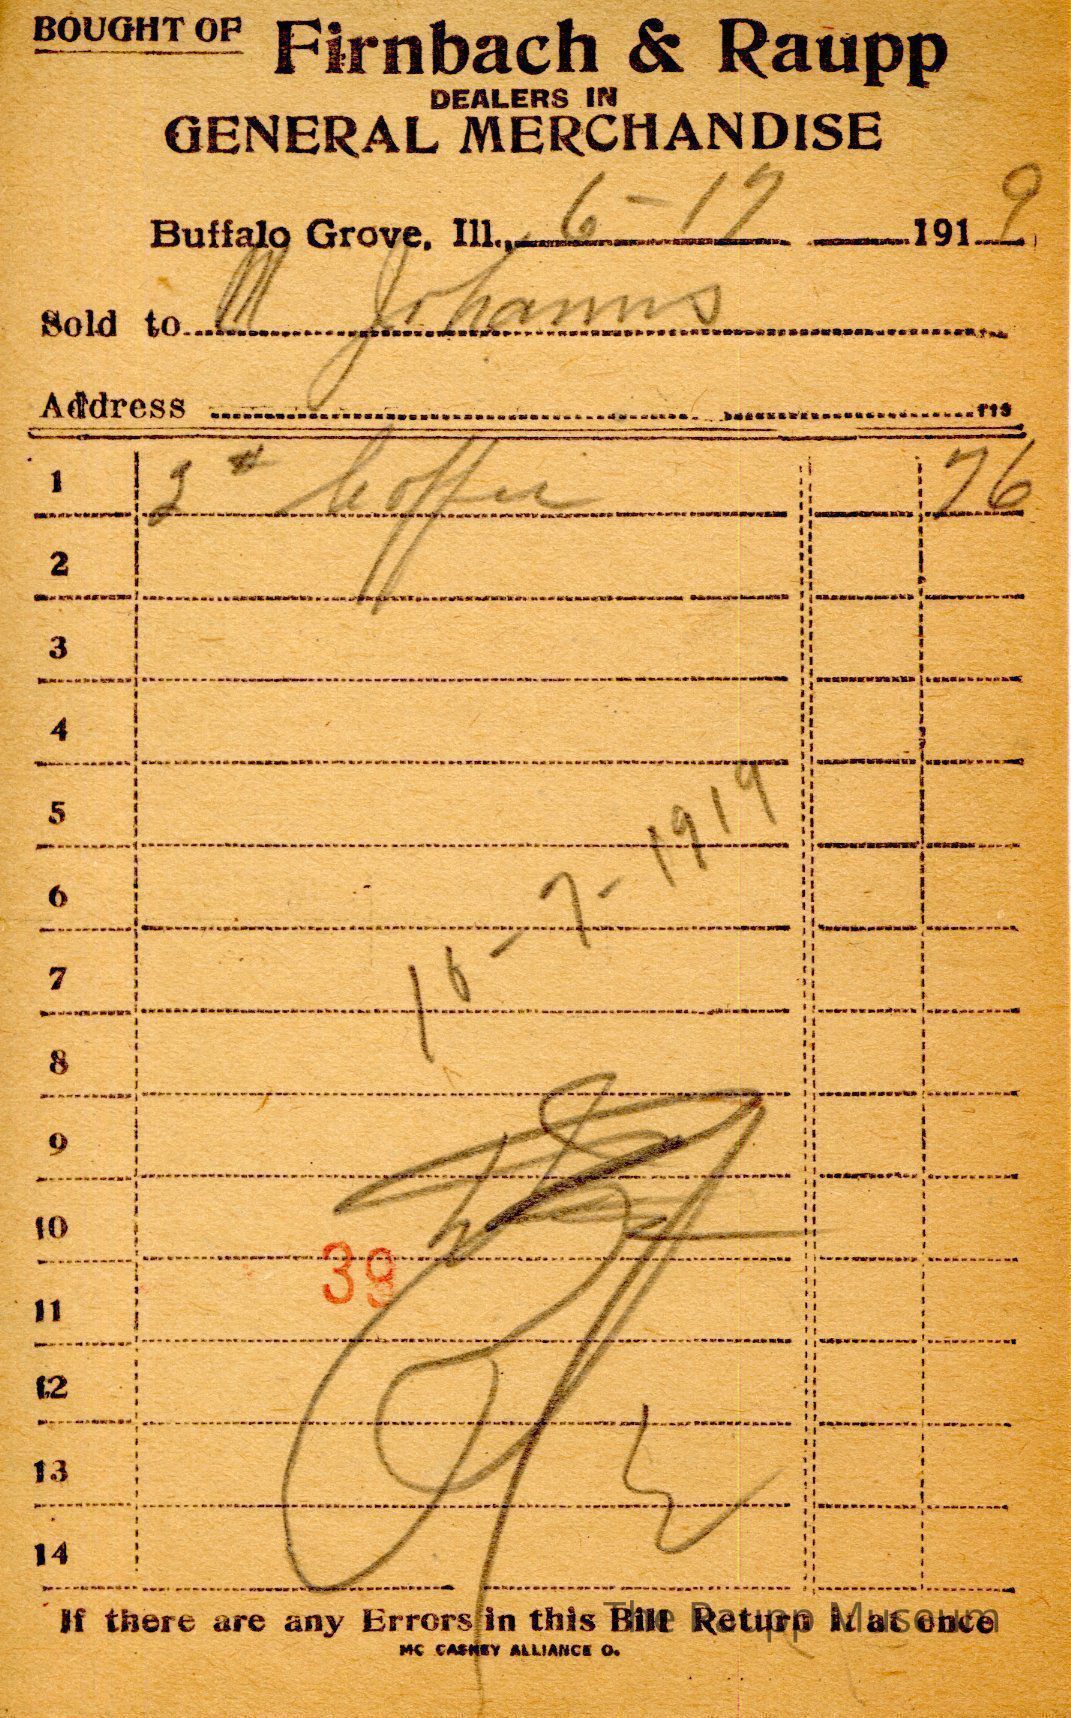 BOUGHT OF Firnbach & Raupp
DEALERS IN
GENERAL MERCHANDISE
Buffalo Grove, Ill., 6-17 1919
Sold to M Johanns
Address
1 2# Coffee 76
2
3
4
5
6
10-7-1919
7
8
9
10
39
11
12
13
14
If there are any Errors in this Bill Return it at once
The Raupp Museum
MC CASKEY ALLIANCE O.